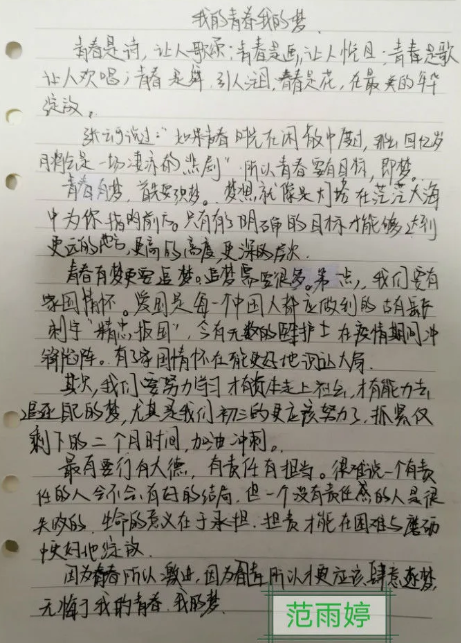 我的青春我的梦
青春是诗,让人歌颂;青春是画,让人悦目;青春是歌
让人欢唱;青春是舞,引人注目,青春是花,在最美的年华
绽放。
张云可说过:“如果青春时光在闲散中度过,那么回忆岁
月将会是一场凄凉的悲剧”所以青春要有目标,即梦。
青春有梦,敢要织梦。梦想就像是灯塔在茫茫大海
中为你指明前方。只有有了明确的目标才能够达到
更远的地方,更高的高度,更深的层次
青春有梦更要追梦。追梦需要很多。第一点,我们要有
家国情怀。爱国是每一个中国人都应做到的古有岳母
刺字“精忠报国”,今有无数的医护士在疫情期间冲
锋陷阵。有了家国情怀才能更好地识大局.
其次,我们要努力学习才有资本走上社会,才有能力去
追逐自己的梦,尤其是我们初三的更应该努力了.抓紧仅
剩下的二个月时间,加油冲刺。
最后要们有大德,有责任有担当。很难说一个有责
任的人会不会有好的结局,但一个没有责任感的人是很
失败的.生命的意义在于承担.担责才能在困难与磨砺
中更好地绽放.
因为青春所以激进,因为青春所以才更应该肆意逐梦,
无悔了我的青春.我的梦.
范雨婷